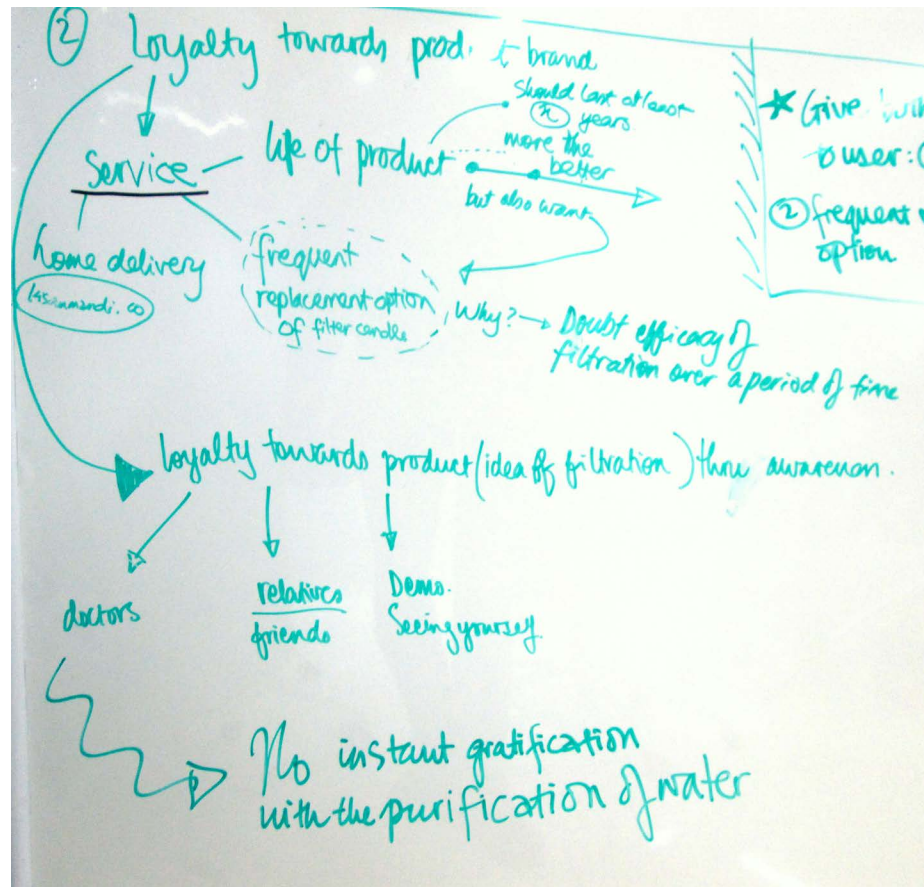 ② Loyalty towards prod. & brand
Service
life of product
Should last at least
(x) years
more the
better
but also want
home delivery
frequent
replacement option
of filter candle
Why? → Doubt efficacy of
filtration over a period of time
loyalty towards product (idea of filtration) thru
doctors
relatives
friends
Demo.
Seeing yourself
No instant gratification
with the purification of water
★ Give
user:
② frequent
option